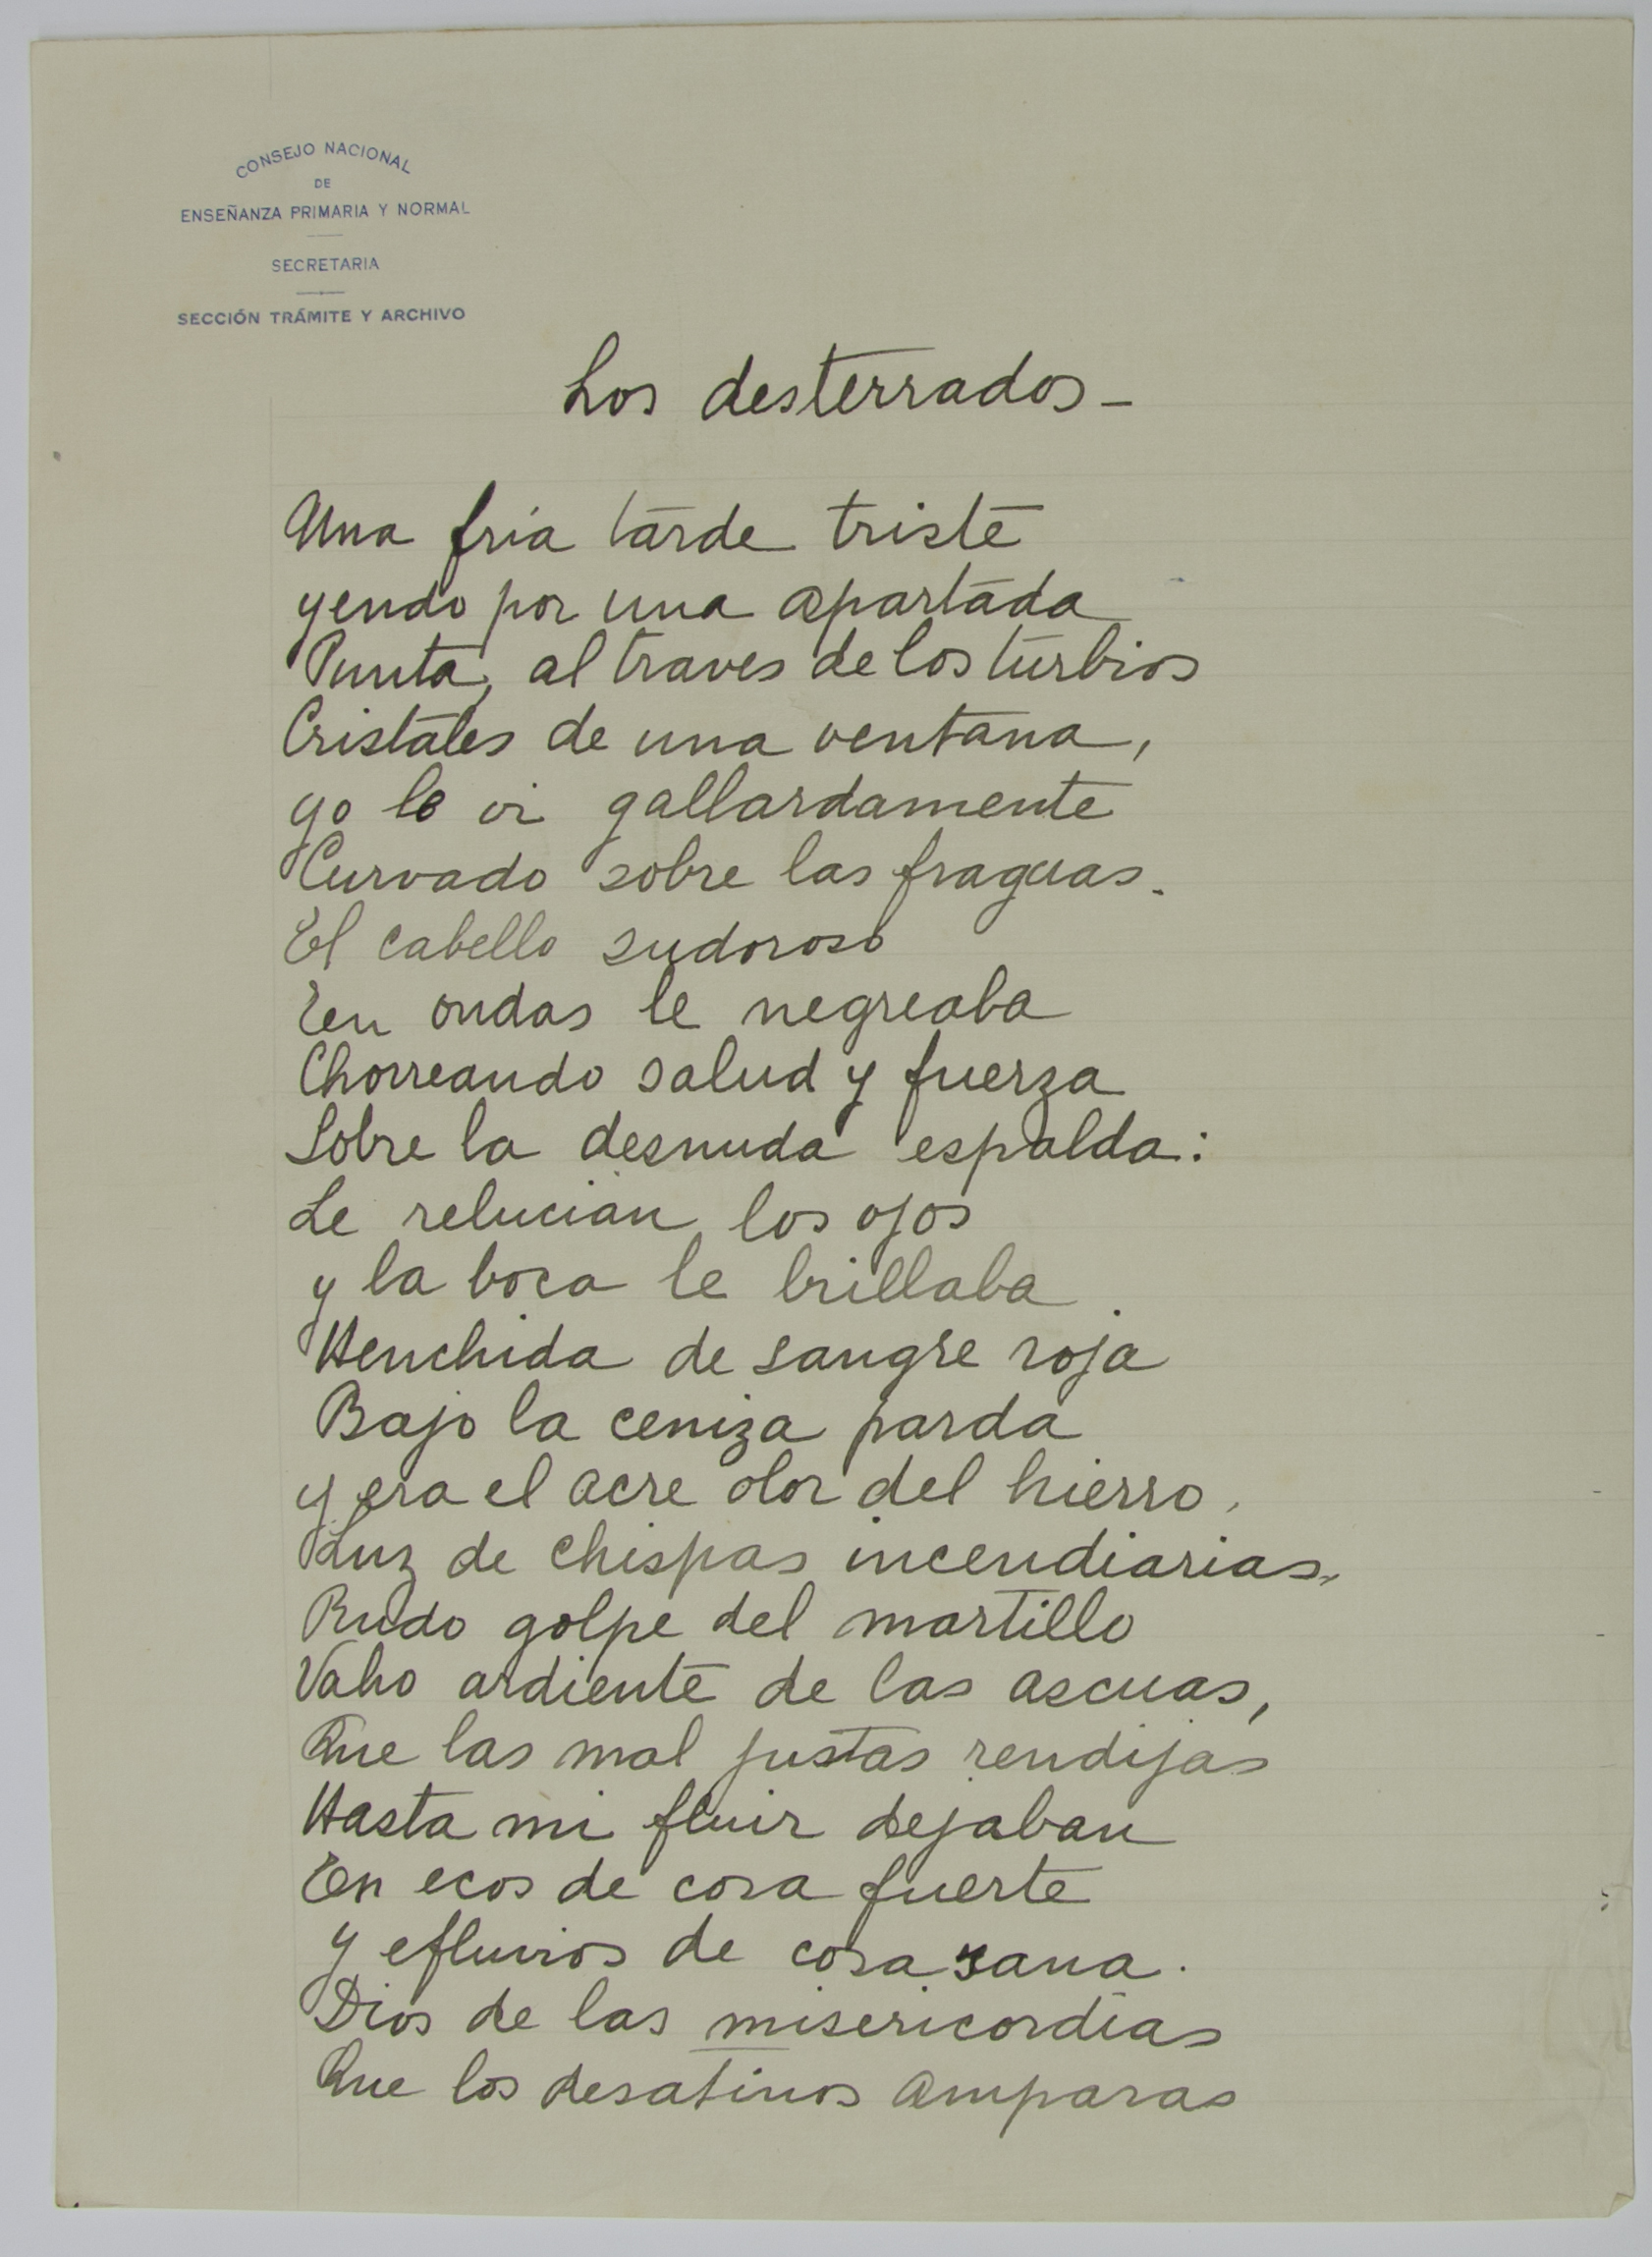 CONSEJO NACIONAL
DE
ENSEÑANZA PRIMARIA Y NORMAL
SECRETARIA
SECCIÓN TRÁMITE Y ARCHIVO
Los desterrados_
Una fría tarde triste
yendo por una apartada
Punta, al traves de los turbios
Cristales de una ventana,
yo lo vi gallardamente
Curvado sobre las fraguas.
El cabello sudoroso
En ondas le negreaba
Chorreando salud y fuerza
Sobre la desnuda espalda:
Le relucian los ojos
y la boca le brillaba
Henchida de sangre roja
Bajo la ceniza parda
y era el acre olor del hierro,
Luz de chispas incendiarias,
Rudo golpe del martillo
Vaho ardiente de las ascuas,
Que las mal justas rendijas
Hasta mi fluir dejaban
En ecos de cosa fuerte
y efluvios de cosa sana.
Dios de las misericordias
Que los desatinos amparas